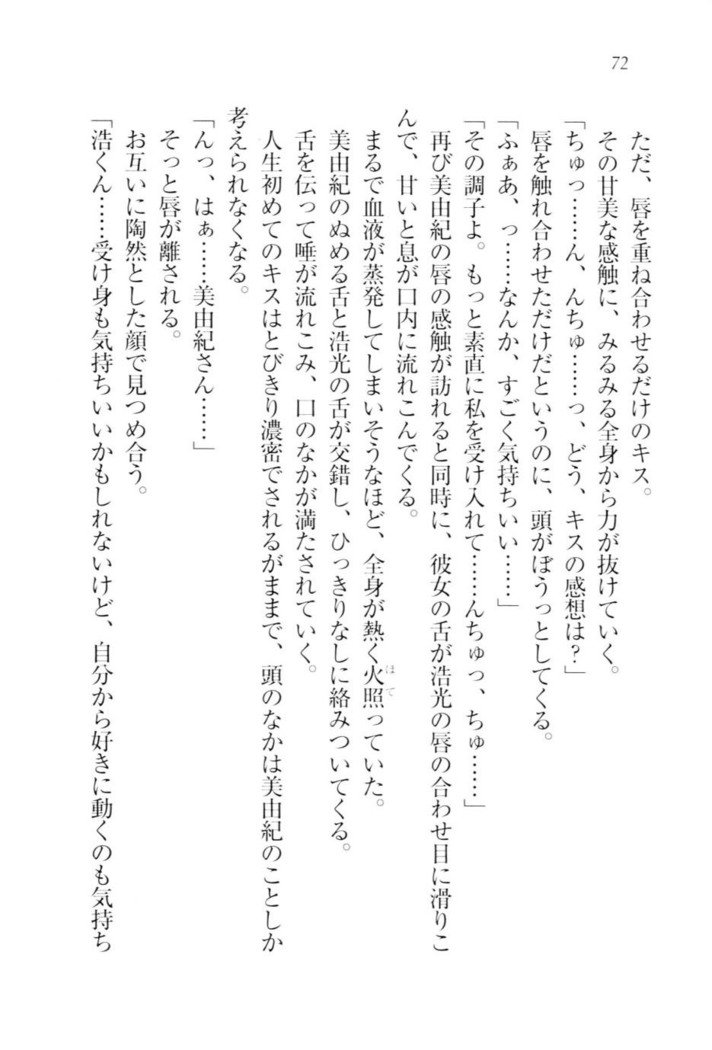 72
ただ、唇を重ね合わせるだけのキス。
その甘美な感触に、みるみる全身から力が抜けていく。
「ちゅっ……ん、んちゅ……っ、どう、キスの感想は？」
唇を触れ合わせただけだというのに、頭がぼうっとしてくる。
「ふぁあ、っ……なんか、すごく気持ちいい……」
「その調子よ。もっと素直に私を受け入れて……んちゅっ、ちゅ……」
再び美由紀の唇の感触が訪れると同時に、彼女の舌が浩光の唇の合わせ目に滑りこ
んで、甘いと息が口内に流れこんでくる。
まるで血液が蒸発してしまいそうなほど、全身が熱く火照っていた。
美由紀のぬめる舌と浩光の舌が交錯し、ひっきりなしに絡みついてくる。
舌を伝って唾が流れこみ、口のなかが満たされていく。
人生初めてのキスはとびきり濃密でされるがままで、頭のなかは美由紀のことしか
考えられなくなる。
「んっ、はぁ……美由紀さん……」
そっと唇が離される。
お互いに陶然とした顔で見つめ合う。
「浩くん……受け身も気持ちいいかもしれないけど、自分から好きに動くのも気持ち